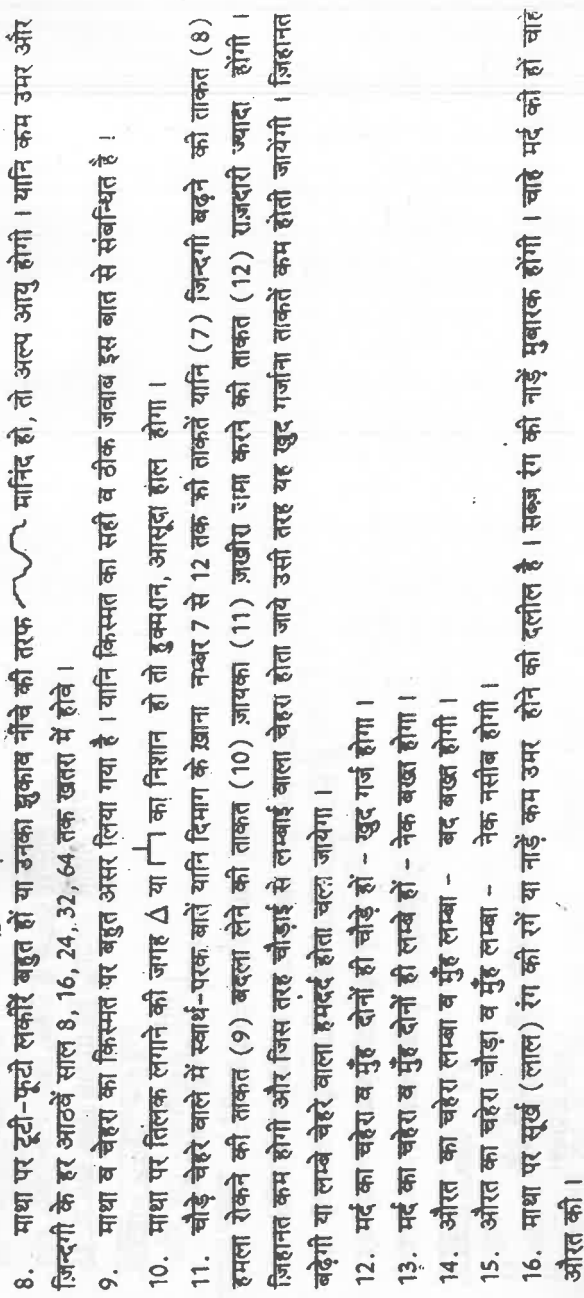 8. माथा पर टूटी-फूटी लकीरें बहुत हों या उनका झुकाव नीचे की तरफ मानिंद हो, तो अल्प आयु होगी । यानि कम उमर और
ज़िन्दगी के हर आठवें साल 8, 16, 24, 32, 64 तक खतरा में होवे ।
9. माथा व चेहरा का किस्मत पर बहुत असर लिया गया है । यानि किस्मत का सही व ठीक जवाब इस बात से संबन्धित है ।
10. माथा पर तिलक लगाने की जगह Δ या का निशान हो तो हुक्मरान, आसूदा हाल होगा ।
11. चौड़े चेहरे वाले में स्वार्थ-परक बातें यानि दिमाग के ख़ाना नम्बर 7 से 12 तक की ताकतें यानि (7) जिन्दगी बढ़ने की ताकत (8)
हमला रोकने की ताकत (9) बदला लेने की ताकत (10) ज़ायका (11) ज़खीरा जमा करने की ताकत (12) राज़दारी ज्यादा होंगी ।
ज़िहानत कम होगी और जिस तरह चौड़ाई से लम्बाई वाला चेहरा होता जाये उसी तरह यह खुद गर्जाना ताकतें कम होती जायेंगी । ज़िहानत
बढ़ेगी या लम्बे चेहरे वाला हमदर्द होता चला जायेगा ।
12. मर्द का चहेरा व मुँह दोनों ही चौड़े हों - खुद गर्ज होगा ।
13. मर्द का चहेरा व मुँह दोनों ही लम्बे हों - नेक बख्त होगा ।
14. औरत का चहेरा लम्बा व मुँह लम्बा - बद बख्त होगी ।
15. औरत का चहेरा चौड़ा व मुँह लम्बा - नेक नसीब होगी ।
16. माथा पर सूर्ख (लाल) रंग की रगें या नाड़ें कम उमर होने की दलील है । सब्ज रंग की नाड़ें मुबारक होंगी । चाहे मर्द की हों चाहे
औरत की ।